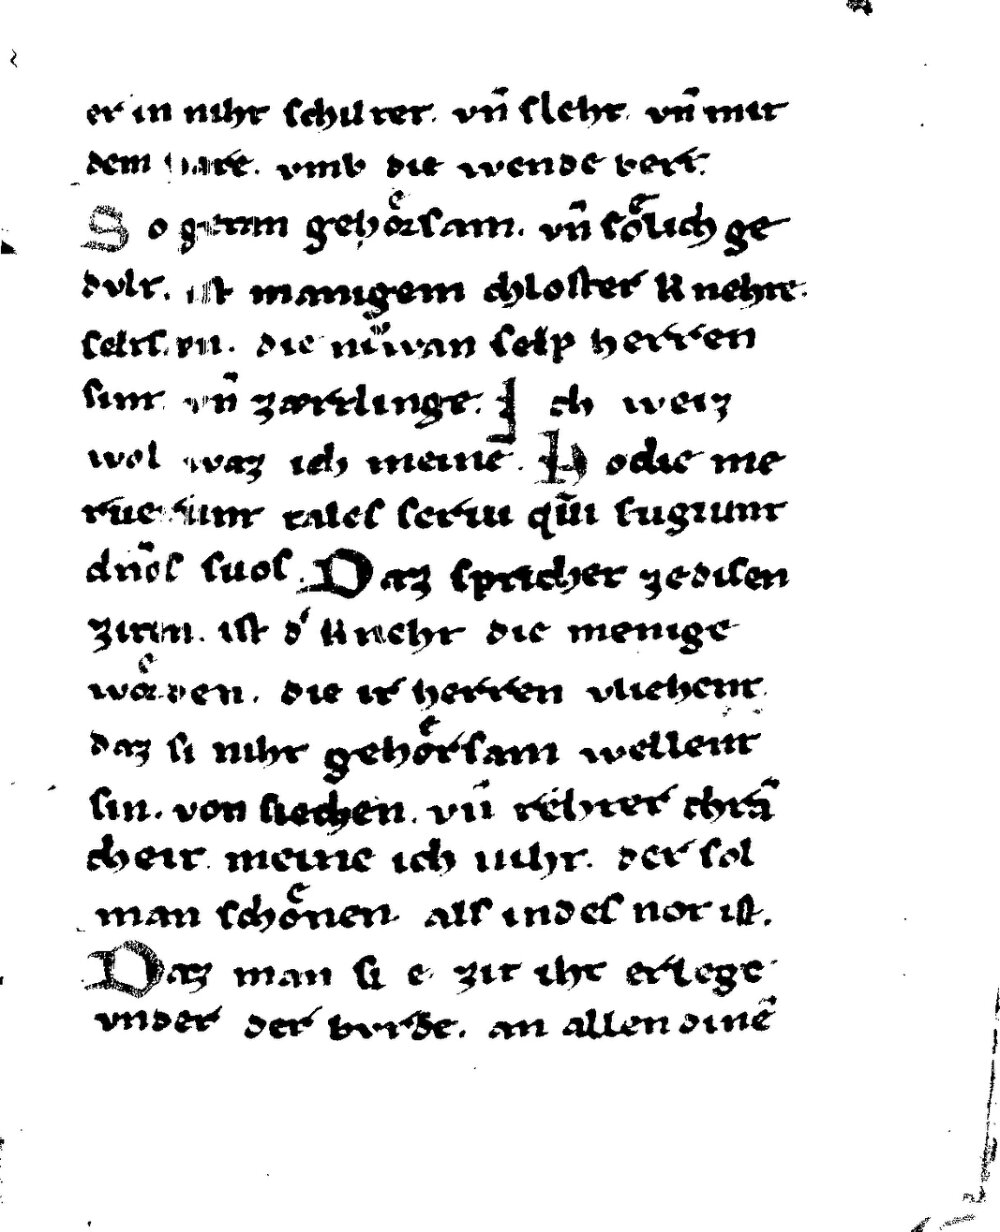 er in niht schiltet. vn̄ sleht. vn̄ mit
dem hare. vmb die wende bert.
So getan gehoͤrsam. vn̄ soͤlich ge
dvlt. ist manigem chloster knehte.
selts. en. die niͮwan selp herren
sint vn̄ zærtlinge. Ich weiz
wol waz ich meine. Hodie me
rue sunt tales serui qui fugiunt
dn̄os suos. Daz sprichet ze disen
ziten. ist d' kneht die menige
woͤrden. die ir herren vliehent.
daz si niht gehoͤrsam wellent
sin. von siechen. vn̄ rehter chra̅
cheit. meine ich niht. der sol
man schoͤnen. als in des not ist.
Daz man si e. zit iht erlege
vnder der bvrde. an allen dine̅